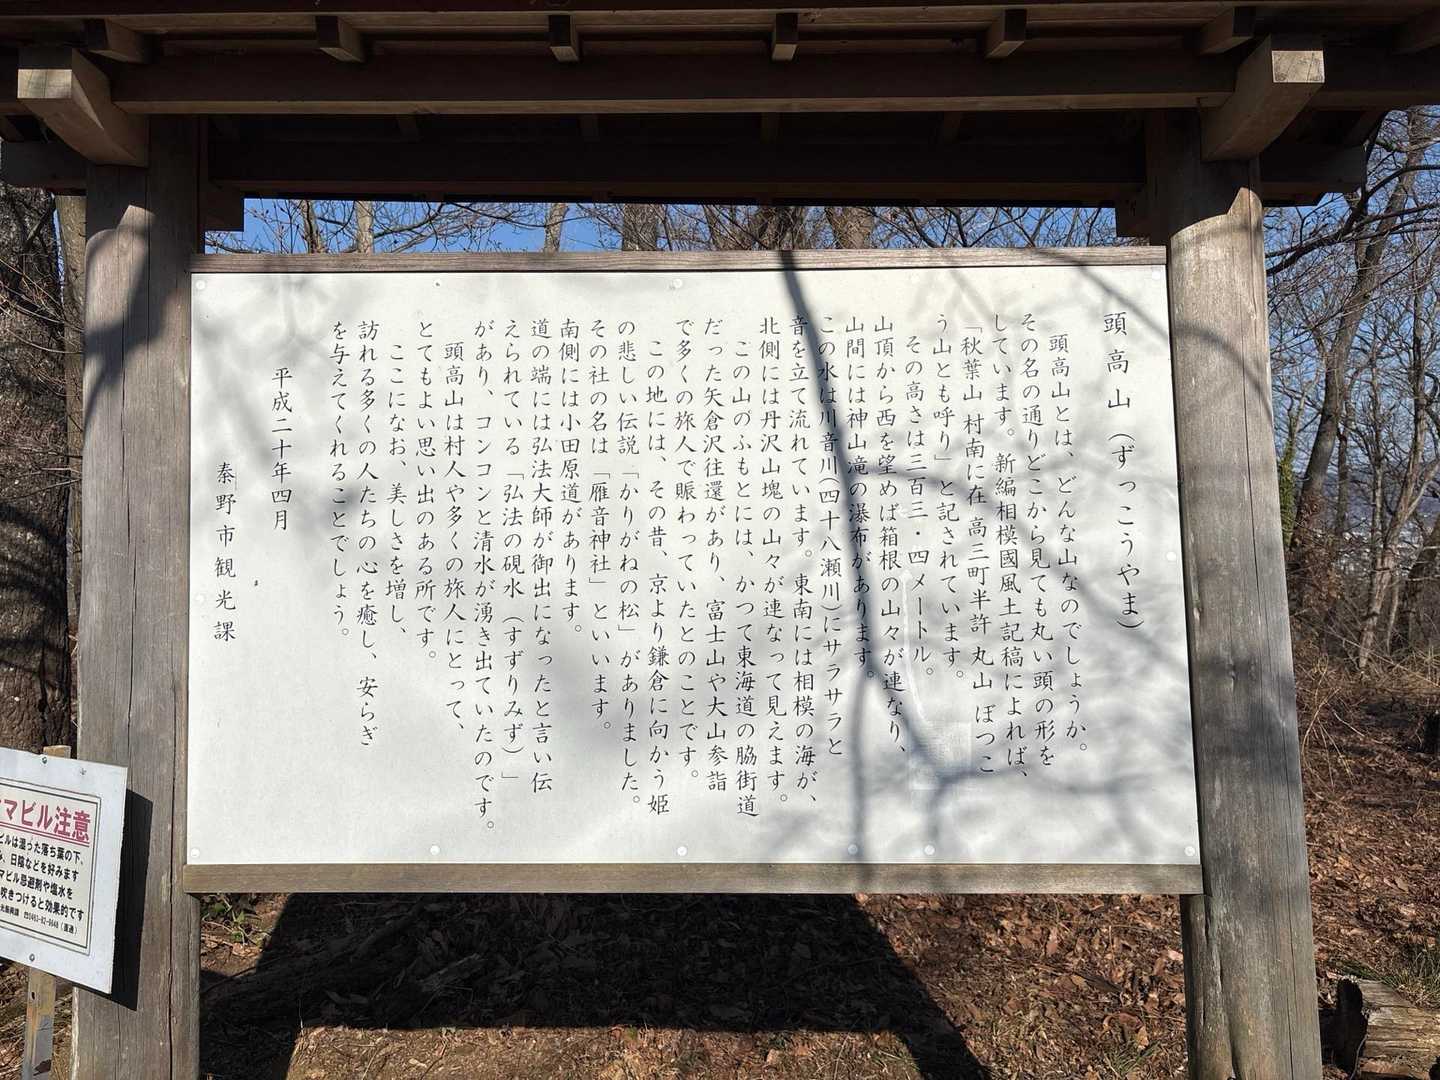 頭高山(ずっこうやま)
頭高山とは、どんな山なのでしょうか。
その名の通りどこから見ても丸い頭の形を
しています。新編相模國風土記稿によれば、
「秋葉山 村南に在 高三町半許 丸山 ぼつこ
う山とも呼り」と記されています。
その高さは三百三・四メートル。
山頂から西を望めば箱根の山々が連なり、
山間には神山滝の瀑布があります。
この水は川音川(四十八瀬川)にサラサラと
音を立て流れています。東南には相模の海が、
北側には丹沢山塊の山々が連なって見えます。
この山のふもとには、かつて東海道の脇街道
だった矢倉沢往還があり、富士山や大山参詣
で多くの旅人で賑わっていたとのことです。
この地には、その昔、京より鎌倉に向かう姫
の悲しい伝説「かりがねの松」がありました。
その社の名は「雁音神社」といいます。
南側には小田原道があります。
道の端には弘法大師が御出になったと言い伝
えられている「弘法の硯水(すずりみず)」
があり、コンコンと清水が湧き出ていたのです。
頭高山は村人や多くの旅人にとって、
とてもよい思い出のある所です。
ここになお、美しさを増し、
訪れる多くの人たちの心を癒し、安らぎ
を与えてくれることでしょう。
平成二十年四月
秦野市観光課
マビル注意
ビルは湿った落ち葉の下、
日陰などを好みます
マビル忌避剤や塩水を
吹きつけると効果的です